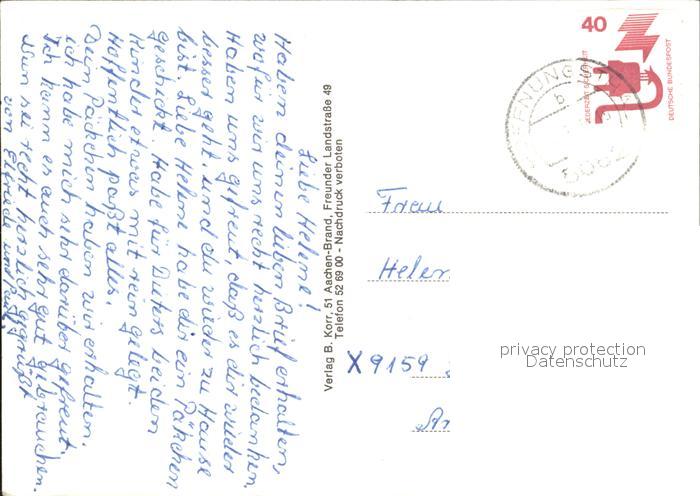 Liebe Helene!
Haben deinen lieben Brief erhalten,
wofür wir uns recht herzlich bedanken.
Haben uns gefreut, daß es dir wieder
besser geht. und du wieder zu Hause
bist. Liebe Helene habe dir ein Päkchen
geschickt habe für Dieters beiden
Kinder etwas mit rein gelegt.
Hoffentlich paßt alles.
Dein Päkchen haben wir erhalten.
ich habe mich sehr darüber gefreut.
Ich kann es auch sehr gut gebrauchen.
Nun sei recht herzlich gegrüßt
von Elfriede und
Verlag B. Korr, 51 Aachen-Brand, Freunder Landstraße 49
Telefon 52 69 00 - Nachdruck verboten
40
JEDERZEIT SICHERHEIT
DEUTSCHE BUNDESPOST
Frau
Helen
X 9159
privacy protection
Datenschutz